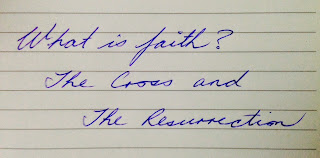 What is faith?
The Cross and
The Resurrection